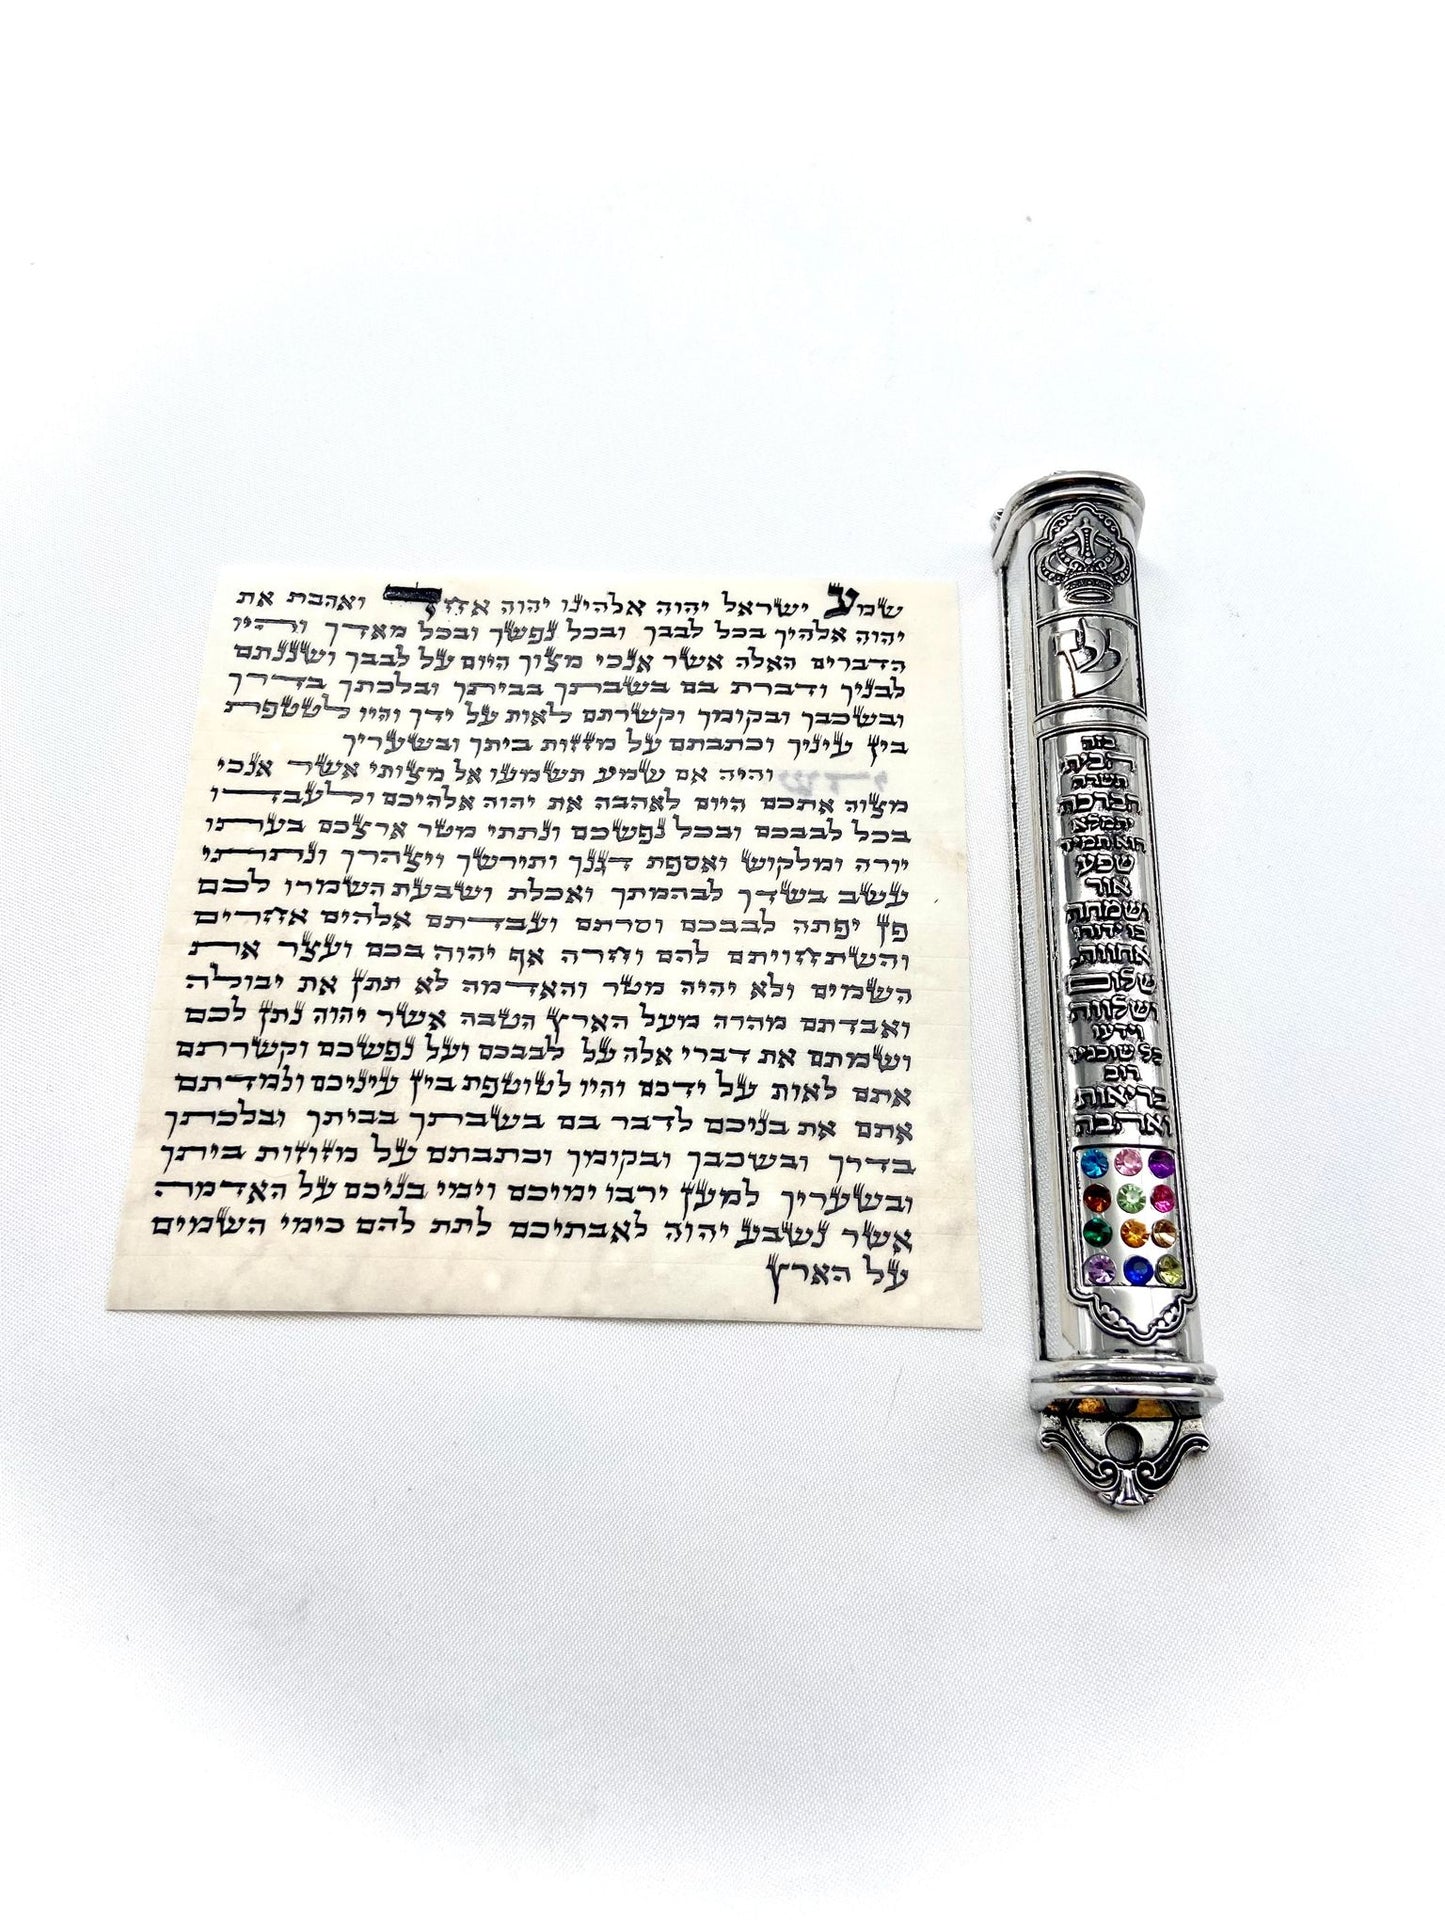 שמע ישראל יהוה אלהינו יהוה אחד ואהבת את
יהוה אלהיך בכל לבבך ובכל נפשך ובכל מאדך והיו
הדברים האלה אשר אנכי מצוך היום על לבבך ושננתם
לבניך ודברת בם בשבתך בביתך ובלכתך בדרך
ובשכבך ובקומך וקשרתם לאות על ידך והיו לטטפת
בין עיניך וכתבתם על מזזות ביתך ובשעריך
והיה אם שמע תשמעו אל מצותי אשר אנכי
מצוה אתכם היום לאהבה את יהוה אלהיכם ולעבדו
בכל לבבכם ובכל נפשכם ונתתי מטר ארצכם בעתו
יורה ומלקוש ואספת דגנך ותירשך ויצהרך ונתתי
עשב בשדך לבהמתך ואכלת ושבעת השמרו לכם
פן יפתה לבבכם וסרתם ועבדתם אלהים אחרים
והשתחויתם להם וחרה אף יהוה בכם ועצר את
השמים ולא יהיה מטר והאדמה לא תתן את יבולה
ואבדתם מהרה מעל הארץ הטבה אשר יהוה נתן לכם
ושמתם את דברי אלה על לבבכם ועל נפשכם וקשרתם
אתם לאות על ידכם והיו לטוטפת בין עיניכם ולמדתם
אתם את בניכם לדבר בם בשבתך בביתך ובלכתך
בדרך ובשכבך ובקומך וכתבתם על מזוזות ביתך
ובשעריך למען ירבו ימיכם וימי בניכם על האדמה
אשר נשבע יהוה לאבתיכם לתת להם כימי השמים
על הארץ
ש
בזה
הבית
תשרה
הברכה
יתמלא
הוא תמיד
שפע
אור
ושמחה
בו ידורו
אחוות
שלום
ושלווה
וידעו
כל שוכניו
רוב
בריאות
ואהבה